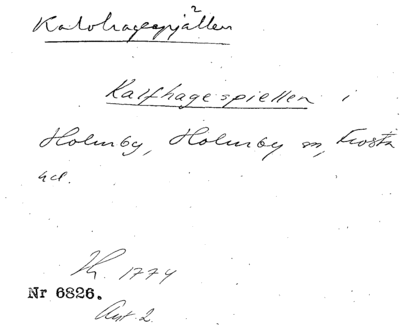 Kalvhagespjällen
Kalfhagespiellen i
Holmby, Holmby sn, Frosta
hd.
Kh. 1774
Nr 6826.
Avt. 2.